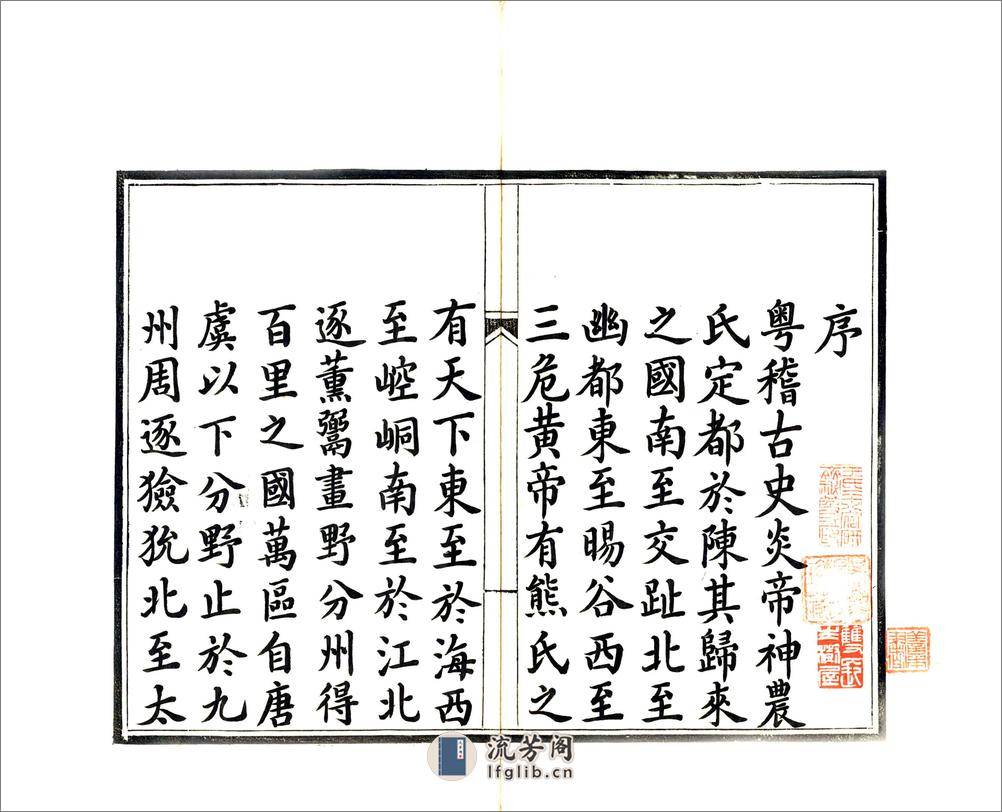 序
粤稽古史炎帝神農
氏定都於陳其歸來
之國南至交趾北至
幽都東至暘谷西至
三危黄帝有熊氏之
有天下東至於海西
至崆峒南至於江北
逐薰鬻畫野分州得
百里之國萬區自唐
虞以下分野止於九
州周逐獫狁北至太
流芳阁
lfglib.cn